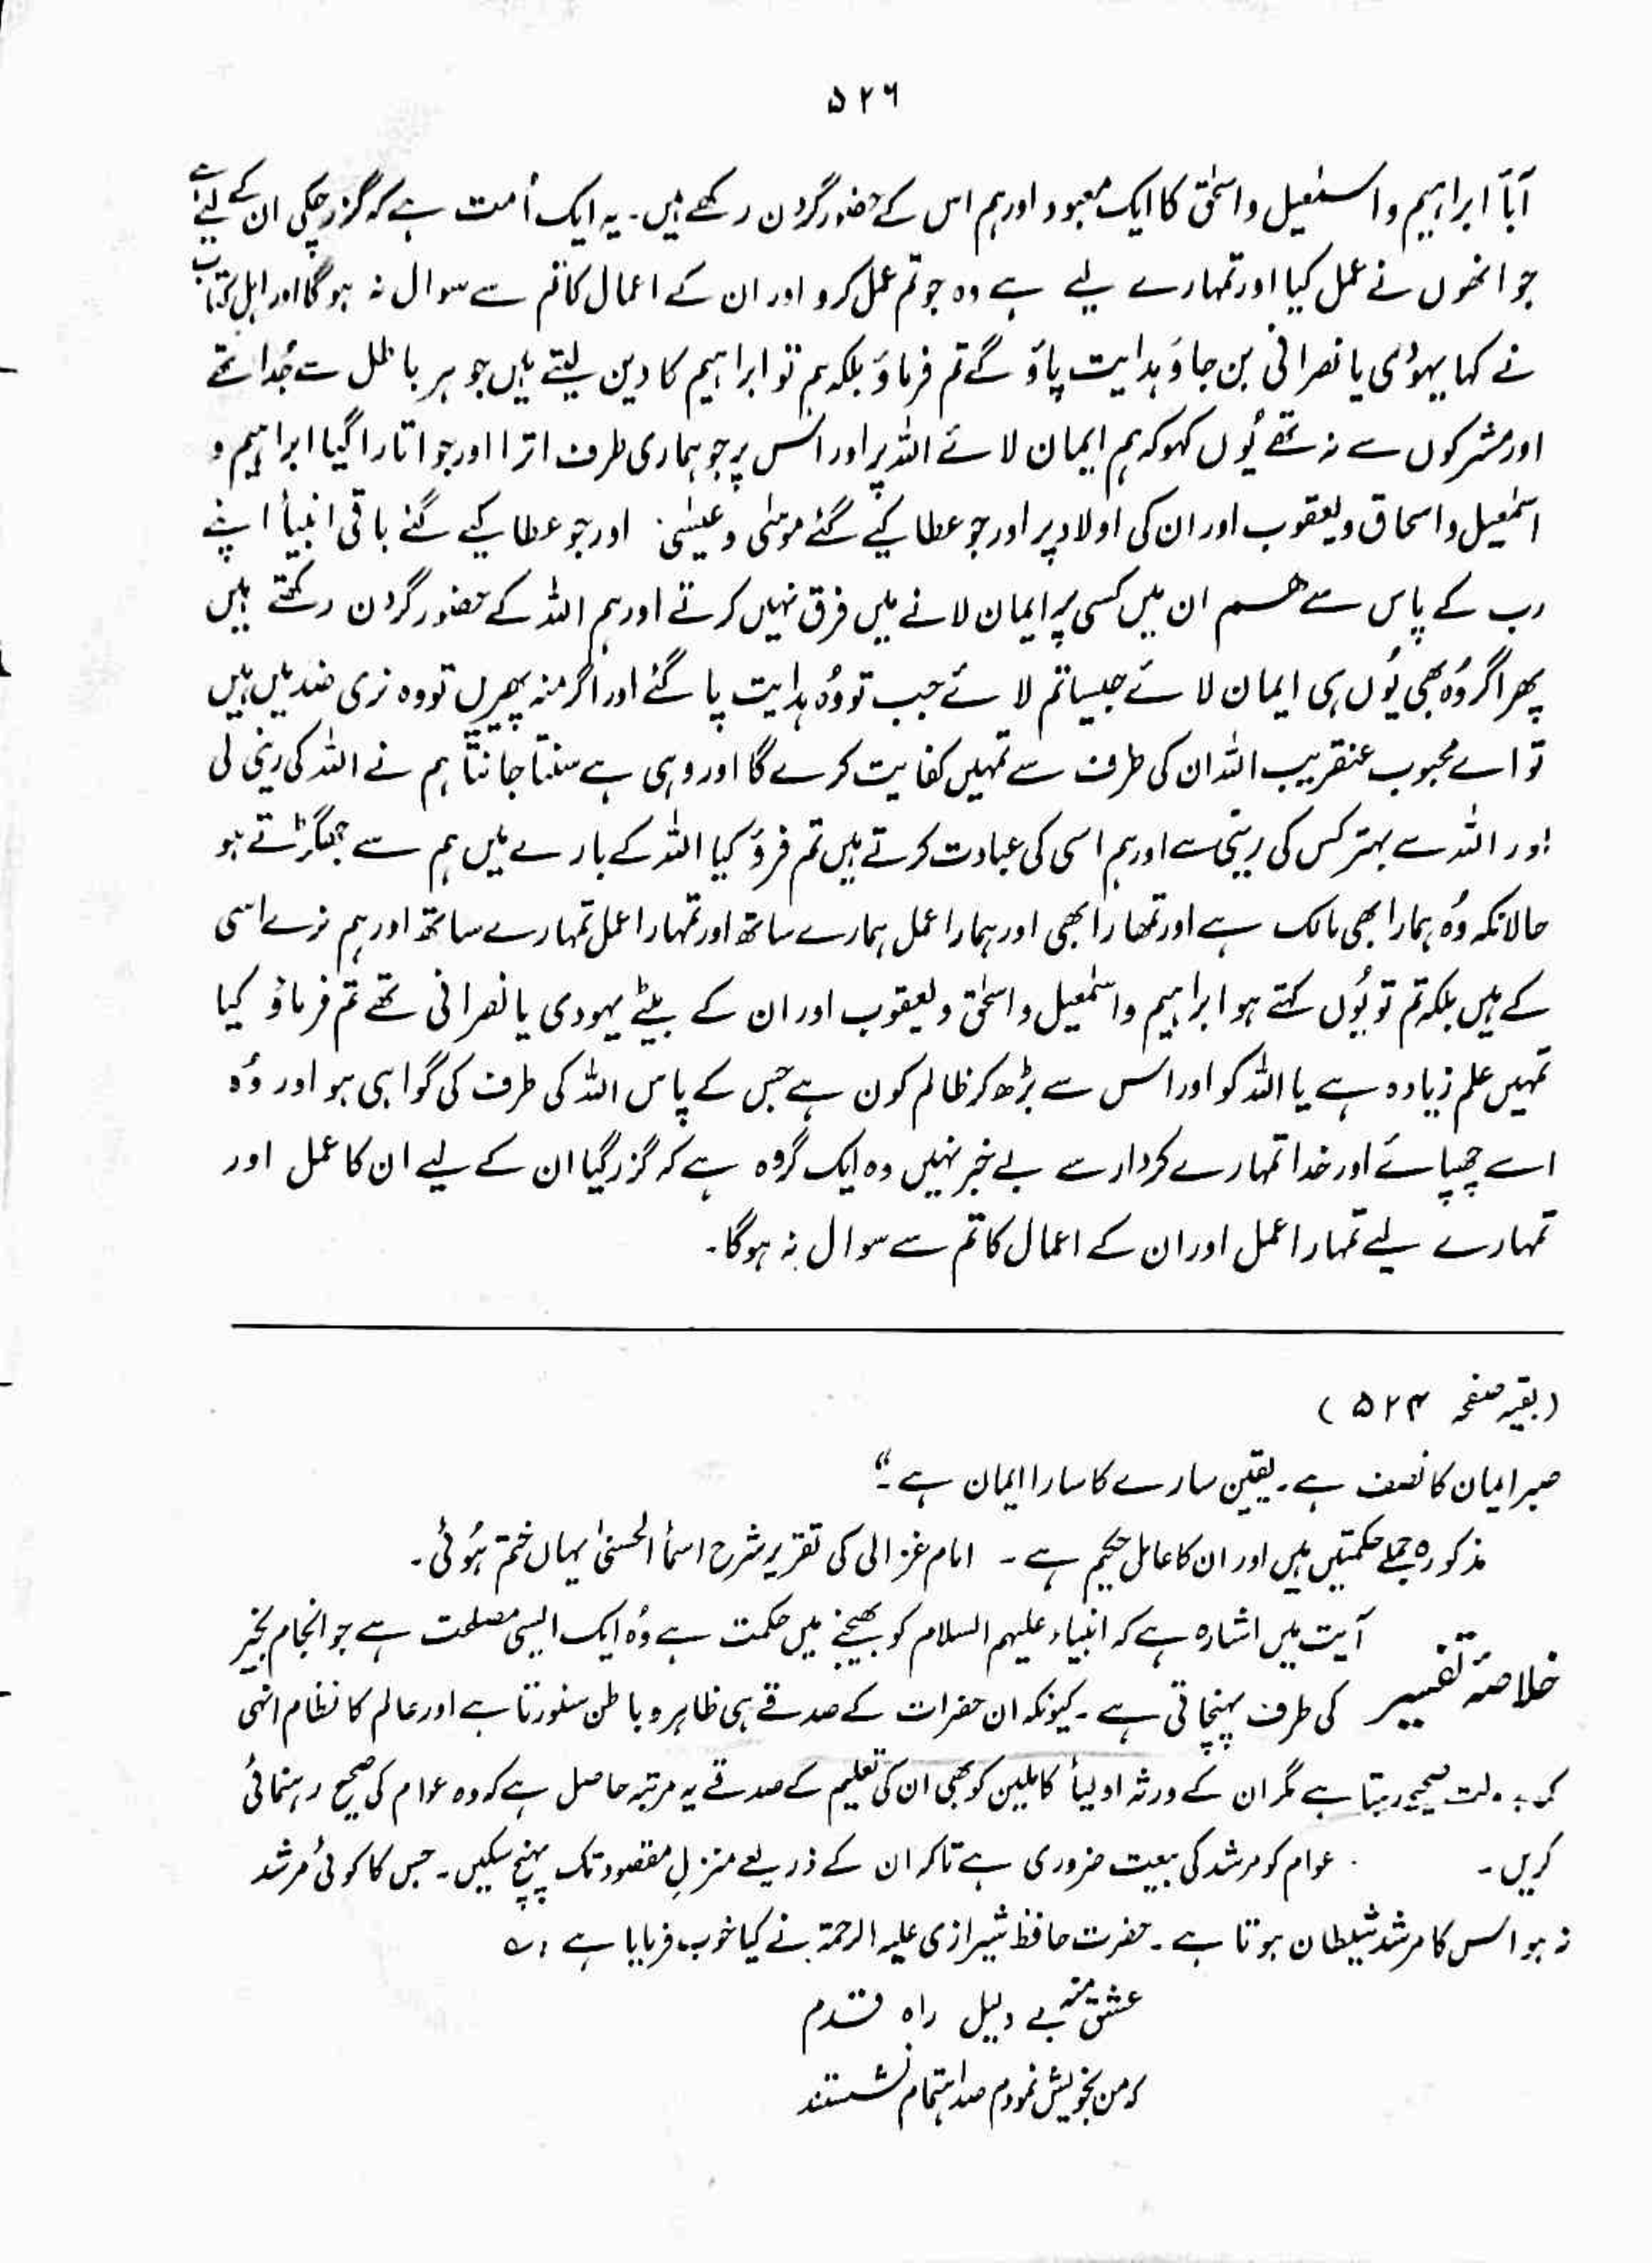 ۵۲۶
آبأ ابراہیم و اسمٰعیل و اسحٰق کا ایک معبود اور ہم اس کے حضور گردن رکھے ہیں۔ یہ ایک اُمت ہے کہ گزر چکی ان کے لیے ہے
جو انھوں نے عمل کیا اور تمہارے لیے ہے وہ جو تم عمل کرو اور ان کے اعمال کا تم سے سوال نہ ہوگا اور اہل کتاب
نے کہا یہودی یا نصرانی بن جاؤ ہدایت پاؤ گے تم فرماؤ بلکہ ہم تو ابراہیم کا دین لیتے ہیں جو ہر باطل سے جُدا تھے
اور مشرکوں سے نہ تھے یُوں کہو کہ ہم ایمان لائے اللہ پر اور اس پر جو ہماری طرف اترا اور جو اتارا گیا ابراہیم و
اسمٰعیل و اسحاق و یعقوب اور ان کی اولاد پر اور جو عطا کیے گئے موسٰی و عیسٰی اور جو عطا کیے گئے باقی انبیأ اپنے
رب کے پاس سے ہم ان میں کسی پر ایمان لانے میں فرق نہیں کرتے اور ہم اللہ کے حضور گردن رکھتے ہیں
پھر اگر وُہ بھی یُوں ہی ایمان لائے جیسا تم لائے جب تو وُہ ہدایت پا گئے اور اگر منہ پھیریں تو وہ نری ضد میں ہیں
تو اے محبوب عنقریب اللہ ان کی طرف سے تمہیں کفایت کرے گا اور وہی ہے سنتا جانتا ہم نے اللہ کی رینی لی
اور اللہ سے بہتر کس کی رینی اور ہم اسی کی عبادت کرتے ہیں تم فرؤ کیا اللہ کے بارے میں ہم سے جھگڑتے ہو
حالانکہ وُہ ہمارا بھی مالک ہے اور تمھارا بھی اور ہمارا عمل ہمارے ساتھ اور تمہارا عمل تمہارے ساتھ اور ہم نرے اسی
کے ہیں بلکہ تم تو یُوں کہتے ہو ابراہیم و اسمٰعیل و اسحٰق و یعقوب اور ان کے بیٹے یہودی یا نصرانی تھے تم فرماؤ کیا
تمہیں علم زیادہ ہے یا اللہ کو اور اس سے بڑھ کر ظالم کون ہے جس کے پاس اللہ کی طرف کی گواہی ہو اور وُہ
اسے چھپائے اور خدا تمہارے کردار سے بے خبر نہیں وہ ایک گروہ ہے کہ گزر گیا ان کے لیے ان کا عمل اور
تمہارے لیے تمہارا عمل اور ان کے اعمال کا تم سے سوال نہ ہوگا۔
(بقیہ صفحہ ۵۲۴)
صبر ایمان کا نصف ہے۔ یقین سارے کا سارا ایمان ہے۔"
مذکورہ جملے حکمتیں ہیں اور ان کا عامل حکیم ہے۔ امام غزالی کی تقریر شرح اسمأ الحسنٰی یہاں ختم ہُوئی۔
خلاصۂ تفسیر آیت میں اشارہ ہے کہ انبیاء علیہم السلام کو بھیجنے میں حکمت ہے وُہ ایک ایسی مصلحت ہے جو انجام بخیر
کی طرف پہنچاتی ہے۔ کیونکہ ان حضرات کے صدقے ہی ظاہر و باطن سنورتا ہے اور عالم کا نظام انہی
کی بدولت صحیح رہتا ہے مگر ان کے ورثہ اولیأ کاملین کو بھی ان کی تعلیم کے صدقے یہ مرتبہ حاصل ہے کہ وہ عوام کی صحیح رہنمائی
کریں۔ عوام کو مرشد کی بیعت ضروری ہے تاکہ ان کے ذریعے منزلِ مقصود تک پہنچ سکیں۔ جس کا کوئی مُرشد
نہ ہو اس کا مرشد شیطان ہوتا ہے۔ حضرت حافظ شیرازی علیہ الرحمۃ نے کیا خوب فرمایا ہے : ؎
عشق منہ بے دلیل راہ قدم
کہ من بخویش نمودم صد اہتمام نشستند